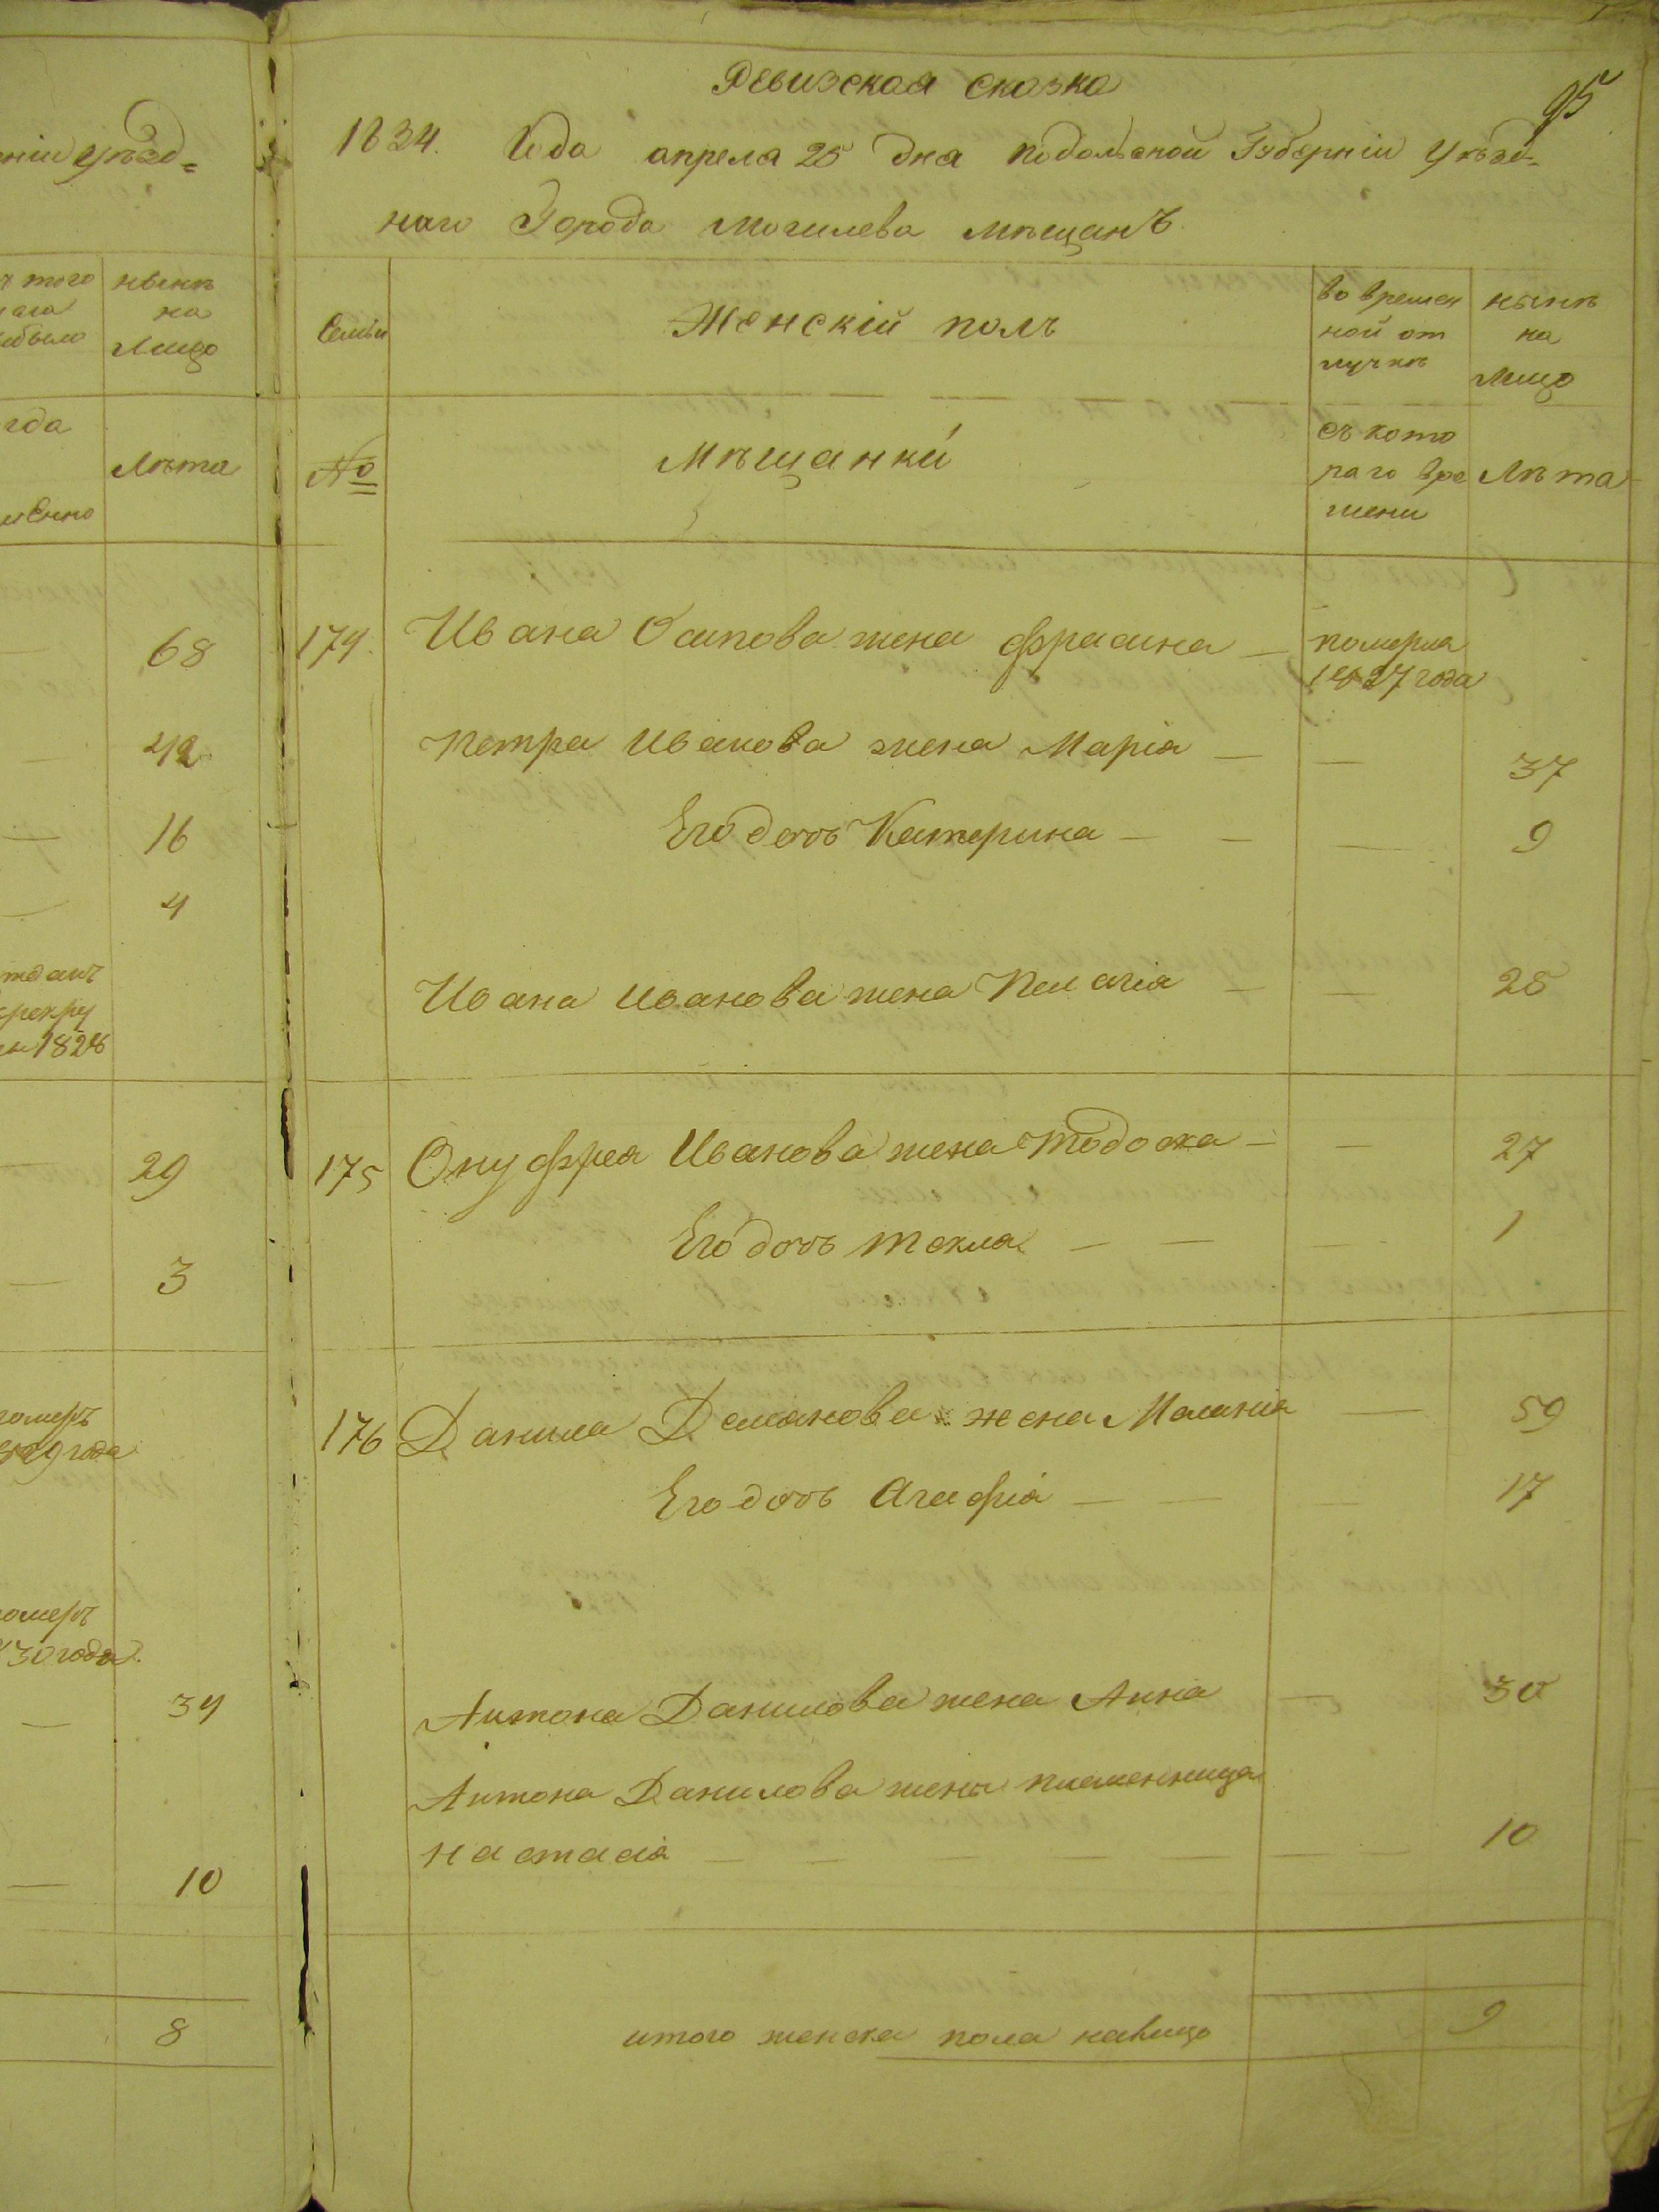 нiи уѣзд=
того
нынѣ
на
Лицо
Лѣта
68
42
16
4
1828
29
3
померъ
829 года
померъ
830 года
34
10
8
95
Ревизская сказка
1834. Года апреля 25 дня подольской Губернiи Уѣзд-
наго Города Могилева мѣщанъ
Семьи
Женскiй полъ
во времен
ной от
лучкѣ
нынѣ
на
Лицо
№
мѣщанки
съ кото
раго вре
мени
Лѣта
174. Ивана Осипова жена Фрасина — померла
1827 года
Петра Иванова жена Марiя — — 37
Его дочь Катерина — — — 9
Ивана Иванова жена Пелагiя — — 25
175 Онуфрея Иванова жена Тодоска — — 27
Его дочь Текла — — — 1
176 Данила Деманова жена Маланiя — 59
Его дочь Агафiя — — — 17
Антона Данилова жена Анна — 30
Антона Данилова жены племенница
Настасiя — — — — — — 10
итого женска пола налицо 9